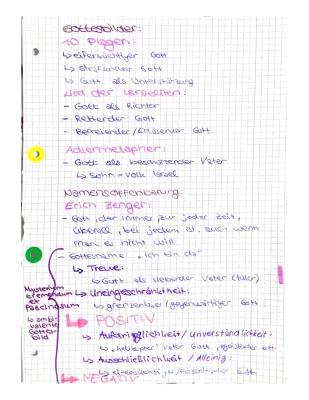 Gottesbilder:
10 Plagen:
↳ eifersüchtiger Gott
↳ strafender Gott
↳ Gott als Unterstützung
Lied der Israeliten:
- Gott als Richter
- Rettender Gott
- Befreiender/Erlösender Gott
Adlermetapher:
- Gott als beschützender Vater
↳ Sohn = Volk Israel
Namensoffenbarung:
Erich Zenger:
- Gott, der immer, zur jeder Zeit,
überall, bei jedem ist, auch wenn
man es nicht will
- Gottesname "Ich bin da"
↳ Treue:
↳ Gott als liebender Vater
Mysterium
tremendum
et
fascinosum
↳ ambi-
valente
Gottes-
bild
↳ Uneingeschränktheit:
↳ grenzenloser/gegenwärtiger Gott
↳ POSITIV
↳ Aufdringlichkeit/Unverständlichkeit:
↳ "helikopter" Vater Gott,
↳ Ausschließlichkeit/Alleinig:
↳ eifersüchtiger
↳ NEGATIV